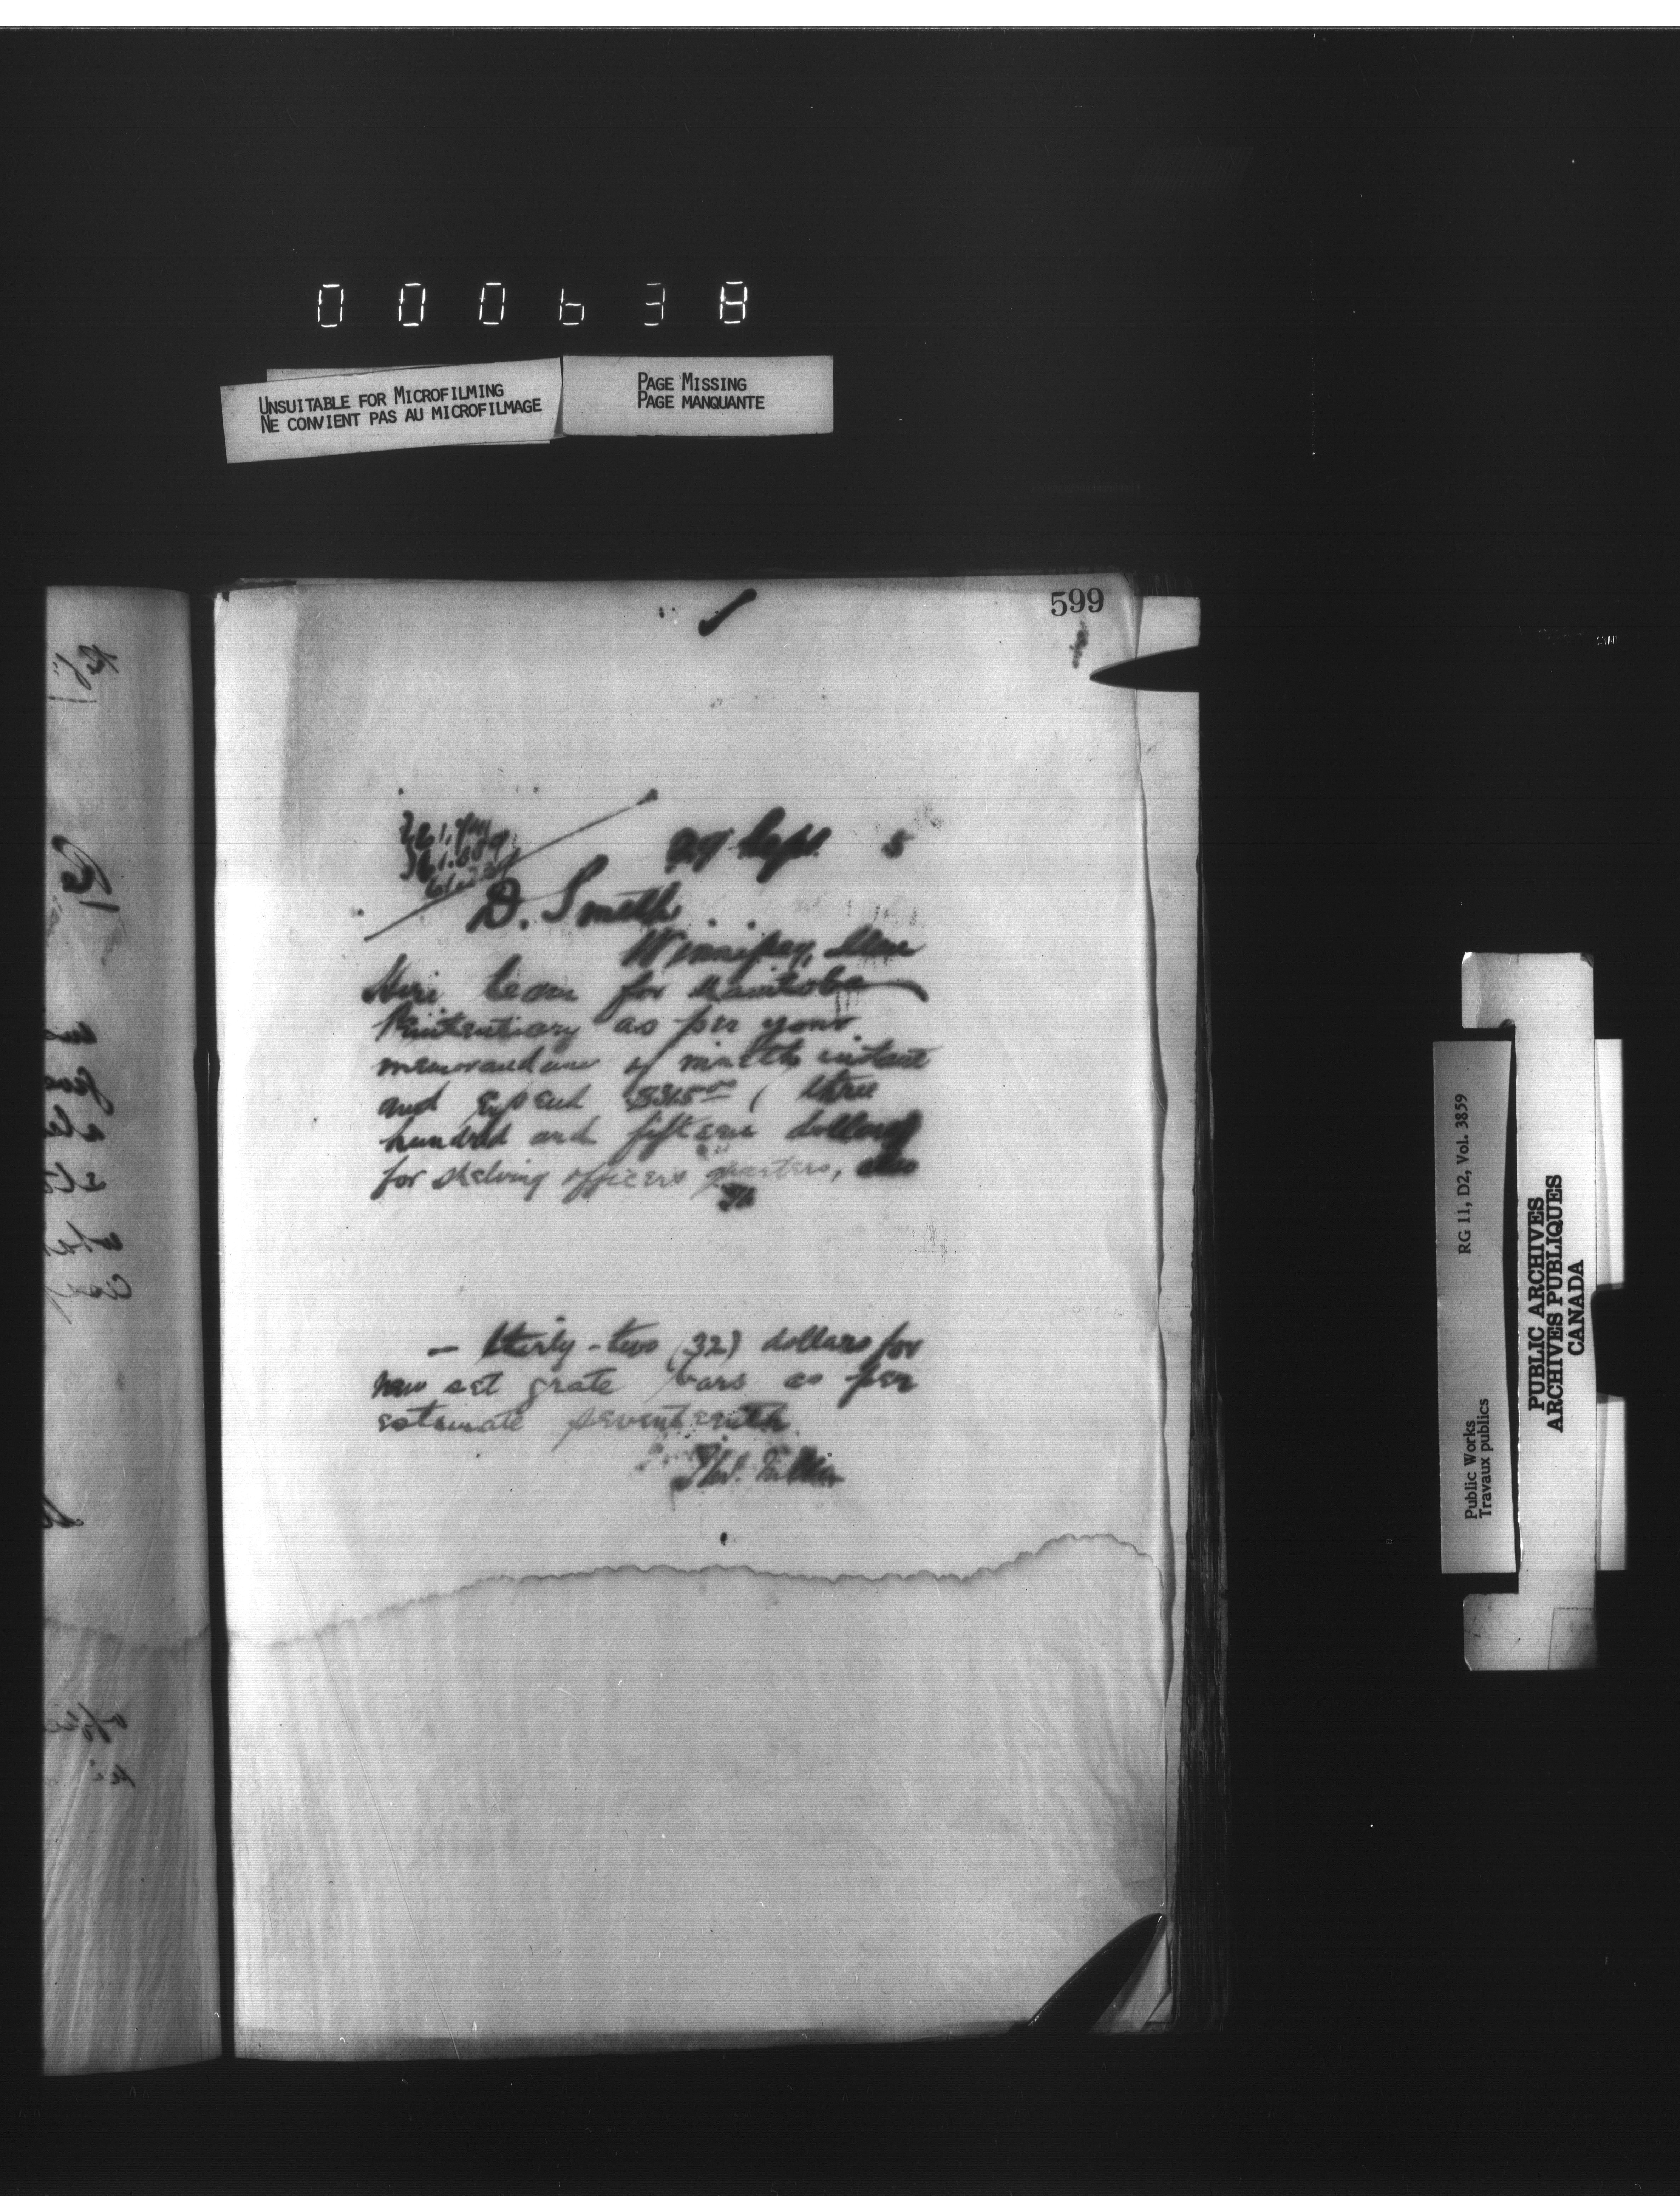 000638
UNSUITABLE FOR MICROFILMING
NE CONVIENT PAS AU MICROFILMAGE
PAGE MISSING
PAGE MANQUANTE
599
29 Sept. 5
D. Smith
Winnipeg, Man
Hire team for Manitoba
Penitentiary as per your
memorandum of ninth instant
and expend $315 00 ( three
hundred and fifteen dollars
for shelving officers quarters, also
- thirty-two (32) dollars for
new set grate bars as per
estimate seventeenth
RG 11, D2, Vol. 3859
Public Works
Travaux publics
PUBLIC ARCHIVES
ARCHIVES PUBLIQUES
CANADA